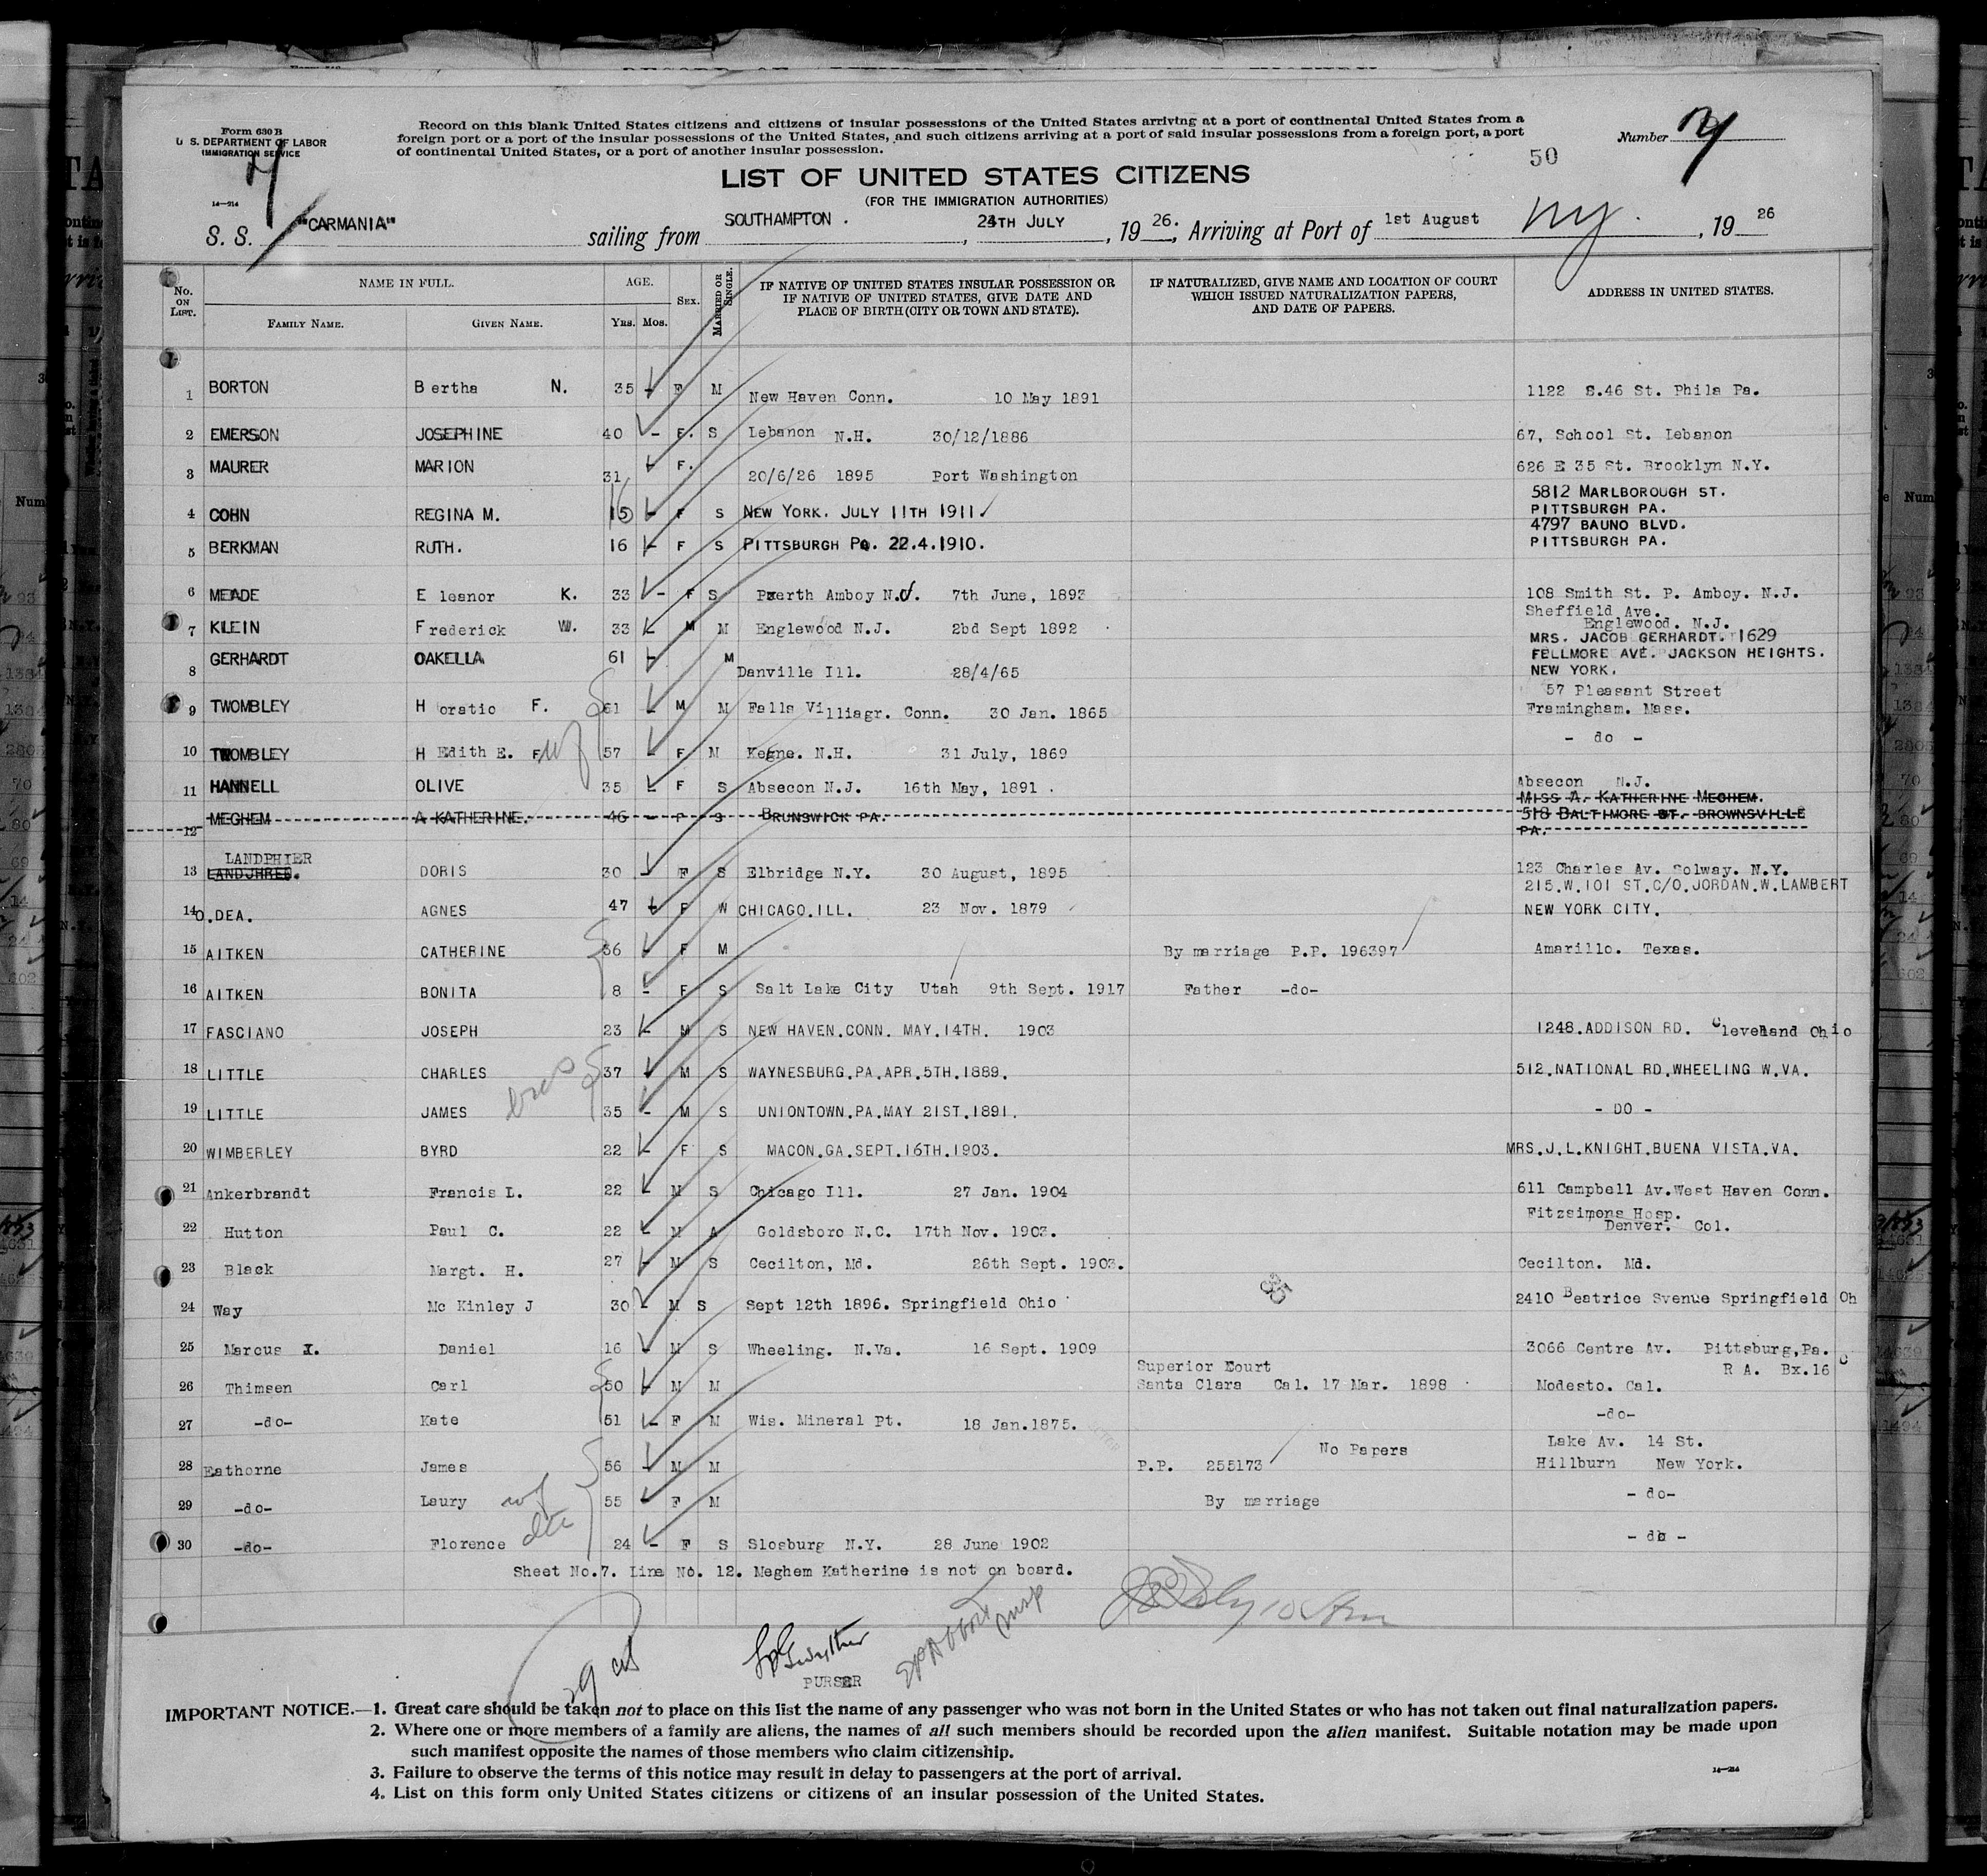 Form 630 B
U. S. DEPARTMENT OF LABOR
IMMIGRATION SERVICE
14—214
Record on this blank United States citizens and citizens of insular possessions of the United States arriving at a port of continental United States from a
foreign port or a port of the insular possessions of the United States, and such citizens arriving at a port of said insular possessions from a foreign port, a port
of continental United States, or a port of another insular possession.
Number
50
LIST OF UNITED STATES CITIZENS
(FOR THE IMMIGRATION AUTHORITIES)
S. S. "CARMANIA" sailing from SOUTHAMPTON . , 24TH JULY , 19 26. , Arriving at Port of 1st August ny. , 19 26
No. ON LIST. NAME IN FULL. AGE. SEX. MARRIED OR SINGLE. IF NATIVE OF UNITED STATES INSULAR POSSESSION OR IF NATIVE OF UNITED STATES, GIVE DATE AND PLACE OF BIRTH (CITY OR TOWN AND STATE). IF NATURALIZED, GIVE NAME AND LOCATION OF COURT WHICH ISSUED NATURALIZATION PAPERS, AND DATE OF PAPERS. ADDRESS IN UNITED STATES.
FAMILY NAME. GIVEN NAME. YRS. MOS.
1 BORTON Bertha N. 35 - F M New Haven Conn. 10 May 1891 1122 S.46 St. Phila Pa.
2 EMERSON JOSEPHINE 40 - F. S Lebanon N.H. 30/12/1886 67, School St. Lebanon
3 MAURER MARION 31 - F. 20/6/26 1895 Port Washington 626 E 35 St. Brooklyn N.Y.
5812 MARLBOROUGH ST.
4 COHN REGINA M. 15 16 - F S NEW YORK. JULY 11TH 1911 PITTSBURGH PA.
4797 BAUNO BLVD.
5 BERKMAN RUTH. 16 - F S PITTSBURGH PA. 22.4.1910. PITTSBURGH PA.
6 MEADE Eleanor K. 33 - F S Pxerth Amboy N.J. 7th June, 1893 108 Smith St. P. Amboy. N.J.
Sheffield Ave.
7 KLEIN Frederick W. 33 - M M Englewood N.J. 2bd Sept 1892 Englewood. N.J.
MRS. JACOB GERHARDT. 1629
8 GERHARDT OAKELLA 61 - M Danville Ill. 28/4/65 FELLMORE AVE. JACKSON HEIGHTS.
NEW YORK.
57 Pleasant Street
9 TWOMBLEY Horatio F. 61 - M M Falls Villiagr. Conn. 30 Jan. 1865 Framingham. Mass.
10 TWOMBLEY H Edith E. F wf 57 - F M Kegne. N.H. 31 July, 1869 - do -
11 HANNELL OLIVE 35 - F S Absecon N.J. 16th May, 1891 . Absecon N.J.
MISS A. KATHERINE MEGHEM.
12 MEGHEM A KATHERINE. 46 - F S BRUNSWICK PA. 518 BALTIMORE ST. BROWNSVILLE
PA.
LANDPHIER
13 DORIS 30 - F S Elbridge N.Y. 30 August, 1895 123 Charles Av. Solway. N.Y.
215.W.101 ST.C/O.JORDAN.W.LAMBERT
14 O.DEA. AGNES 47 - F W CHICAGO.ILL. 23 Nov. 1879 NEW YORK CITY.
15 AITKEN CATHERINE 36 - F M By marriage P.P. 196397 Amarillo. Texas.
16 AITKEN BONITA 8 - F S Salt Lake City Utah 9th Sept. 1917 Father -do-
17 FASCIANO JOSEPH 23 - M S NEW HAVEN.CONN. MAY.14TH. 1903 1248.ADDISON RD. Cleveland Ohio
18 LITTLE CHARLES 37 - M S WAYNESBURG.PA.APR.5TH.1889. 512.NATIONAL RD.WHEELING W.VA.
bros
19 LITTLE JAMES 35 - M S UNIONTOWN.PA.MAY 21ST.1891. - DO -
20 WIMBERLEY BYRD 22 - F S MACON.GA.SEPT.16TH.1903. MRS.J.L.KNIGHT.BUENA VISTA.VA.
21 Ankerbrandt Francis L. 22 - M S Chicago Ill. 27 Jan. 1904 611 Campbell Av.West Haven Conn.
Fitzsimons Hosp.
22 Hutton Paul C. 22 - M A Goldsboro N.C. 17th Nov. 1903. Denver. Col.
23 Black Margt. H. 27 - M S Cecilton, Md. 26th Sept. 1903. Cecilton. Md.
24 Way Mc Kinley J 30 - M S Sept 12th 1896. Springfield Ohio 2410 Beatrice Svenue Springfield Oh
25 Marcus I. Daniel 16 M S Wheeling. N.Va. 16 Sept. 1909 3066 Centre Av. Pittsburg,Pa.
Superior Eourt R A. Bx.16 C
26 Thimsen Carl 50 - M M Santa Clara Cal. 17 Mar. 1898 Modesto. Cal.
27 -do- Kate 51 - F M Wis. Mineral Pt. 18 Jan.1875. -do-
No Papers Lake Av. 14 St.
28 Eathorne James 56 - M M P.P. 255173 Hillburn New York.
29 -do- Laury wf 55 - F M By marriage - do-
30 -do- Florence dtr 24 - F S Slosburg N.Y. 28 June 1902 - do -
Sheet No.7. Line No. 12. Meghem Katherine is not on board.
29
PURSER
IMPORTANT NOTICE.—1. Great care should be taken not to place on this list the name of any passenger who was not born in the United States or who has not taken out final naturalization papers.
2. Where one or more members of a family are aliens, the names of all such members should be recorded upon the alien manifest. Suitable notation may be made upon
such manifest opposite the names of those members who claim citizenship.
3. Failure to observe the terms of this notice may result in delay to passengers at the port of arrival.
4. List on this form only United States citizens or citizens of an insular possession of the United States.
14—214